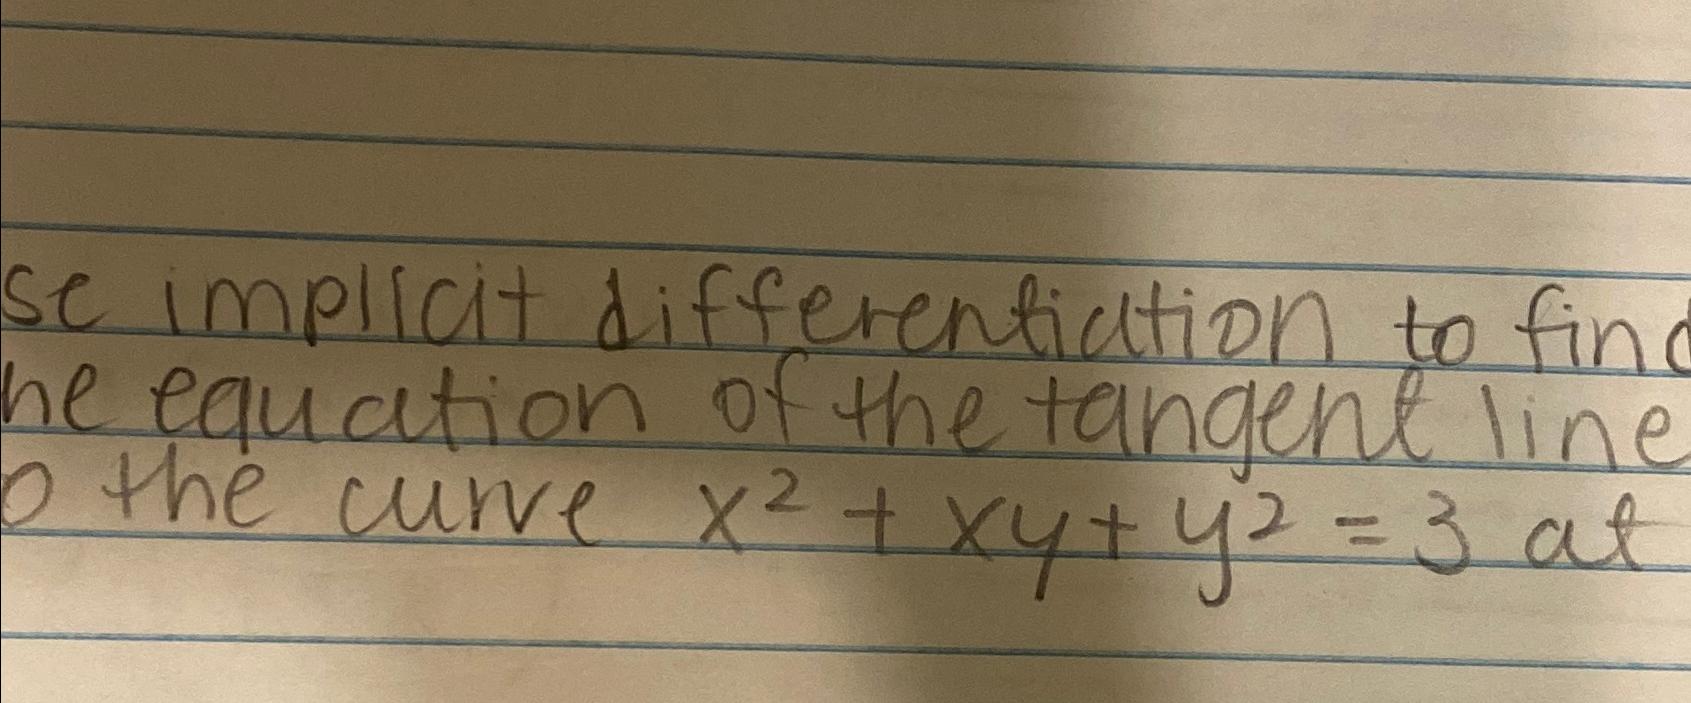 se implicit differentiation to find
he equation of the tangent line
o the curve x² + xy + y² = 3 at